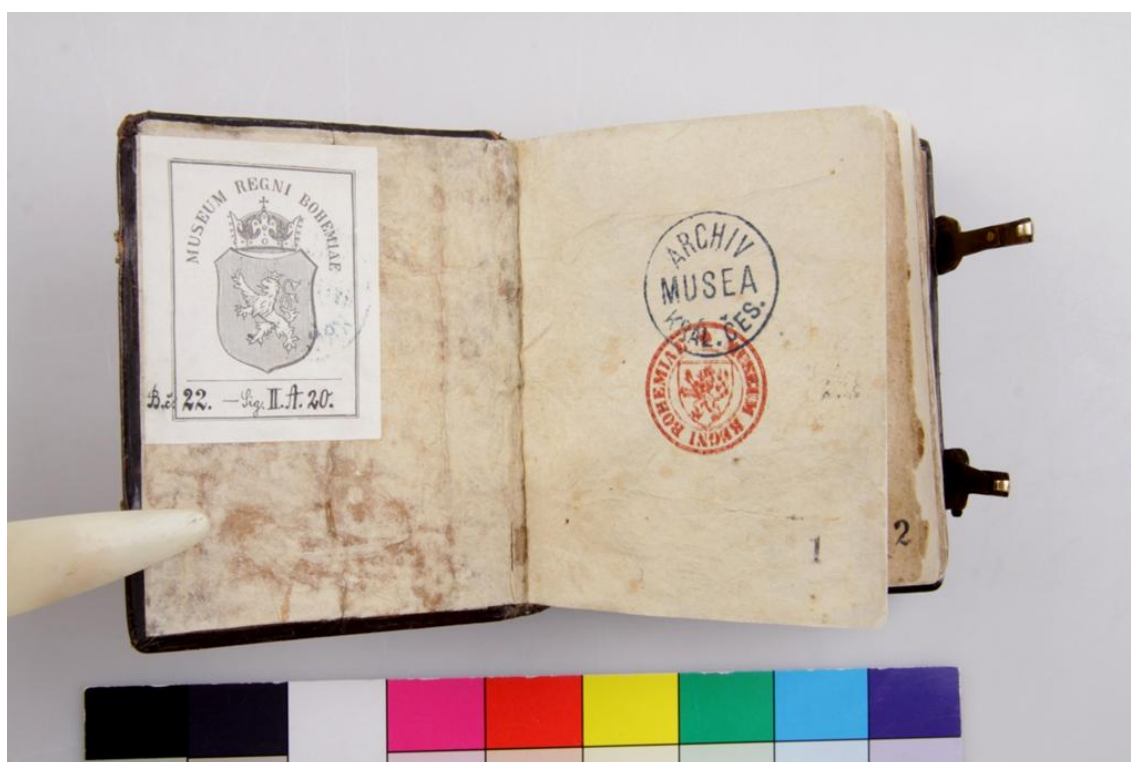 MUSEUM REGNI BOHEMIAE
B.č. 22. — Sig. II. A. 20.
ARCHIV
MUSEA
KRÁL. ČES.
MUSEUM REGNI BOHEMIAE
1
2